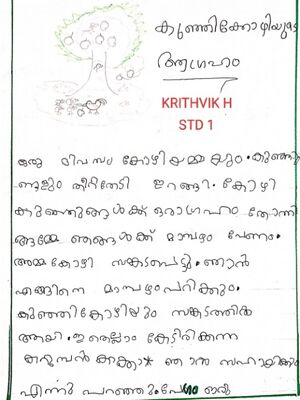 കുഞ്ഞിക്കോഴിയുടെ
ആഗ്രഹം
KRITHVIK H
STD 1
ഒരു ദിവസം കോഴിയമ്മയും കുഞ്ഞു
ങ്ങളും തീറ്റതേടി ഇറങ്ങി. കോഴി
കുഞ്ഞുങ്ങൾക്ക് ഒരാഗ്രഹം തോന്നി
അമ്മേ ഞങ്ങൾക്ക് മാമ്പഴം വേണം.
അമ്മകോഴി സങ്കടപെട്ടു. ഞാൻ
എങ്ങിനെ മാമ്പഴംപറിക്കും.
കുഞ്ഞികോഴിയും സങ്കടത്തിൽ
ആയി. ഇതെല്ലാം കേട്ടിരിക്കുന്ന
കുറുമ്പൻ കാക്ക ഞാൻ സഹായിക്കാം
എന്നു പറഞ്ഞു. ഇരു